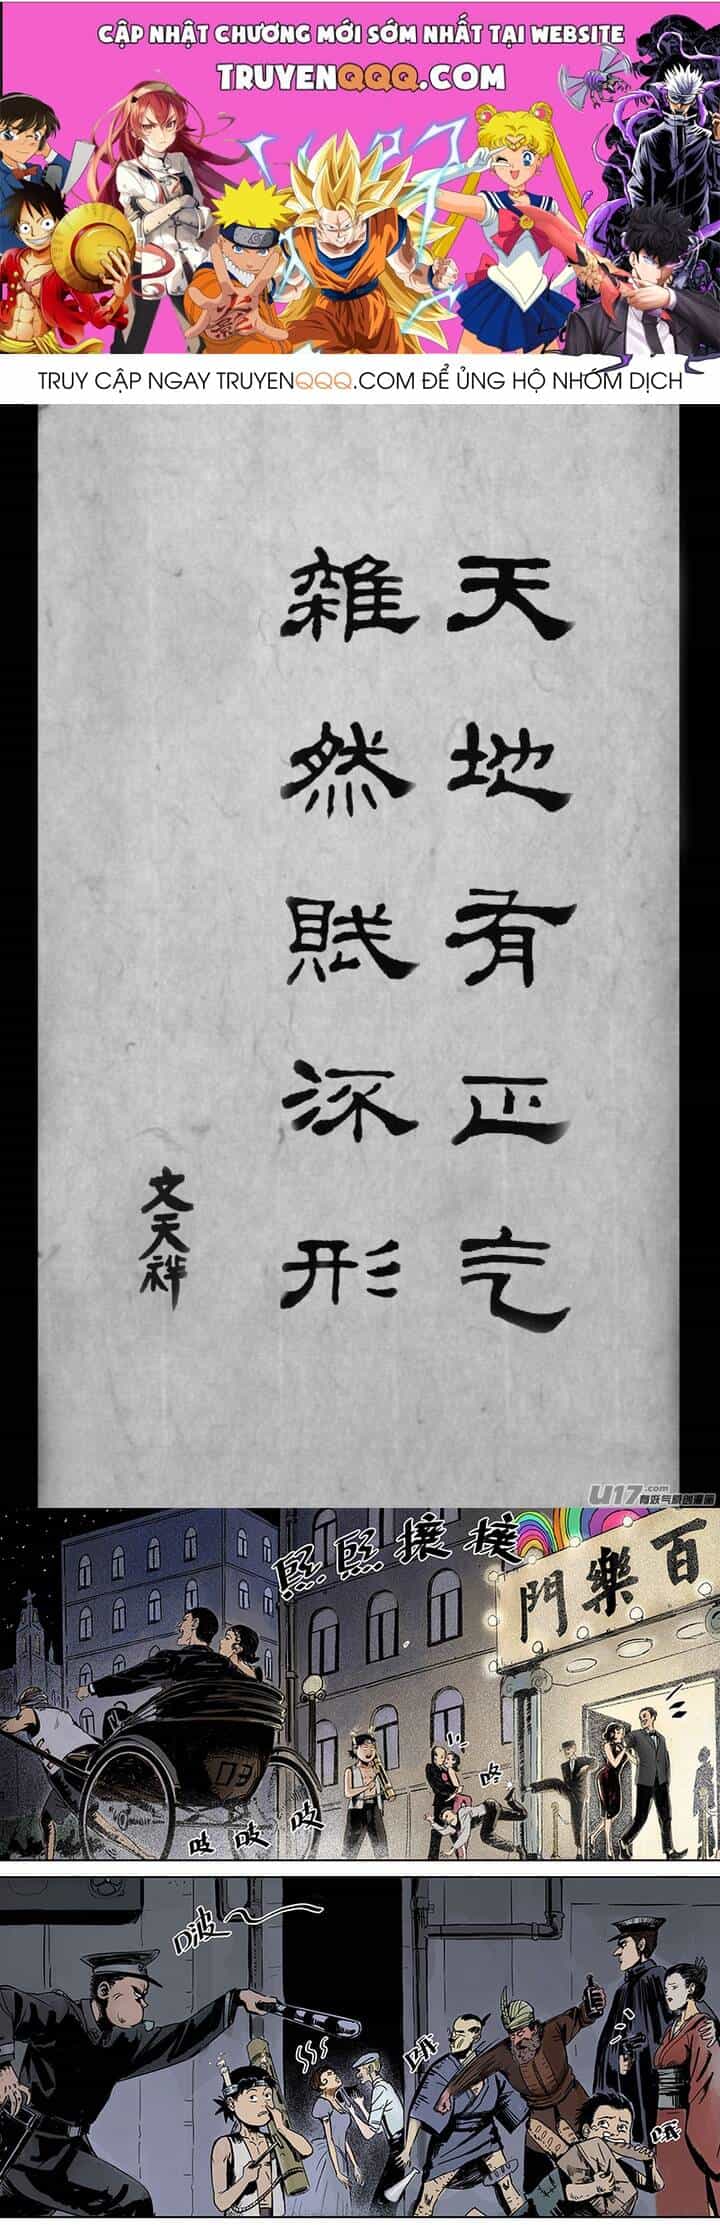 CẬP NHẬT CHƯƠNG MỚI SỚM NHẤT TẠI WEBSITE
TRUYENQQQ.COM
TRUY CẬP NGAY TRUYENQQQ.COM ĐỂ ỦNG HỘ NHÓM DỊCH
天地有正气
雜然賦流形
文天祥
U17.com
有妖气原创漫画
熙熙攘攘
百樂門
03
吱 吱 吱
咚
啵
哦